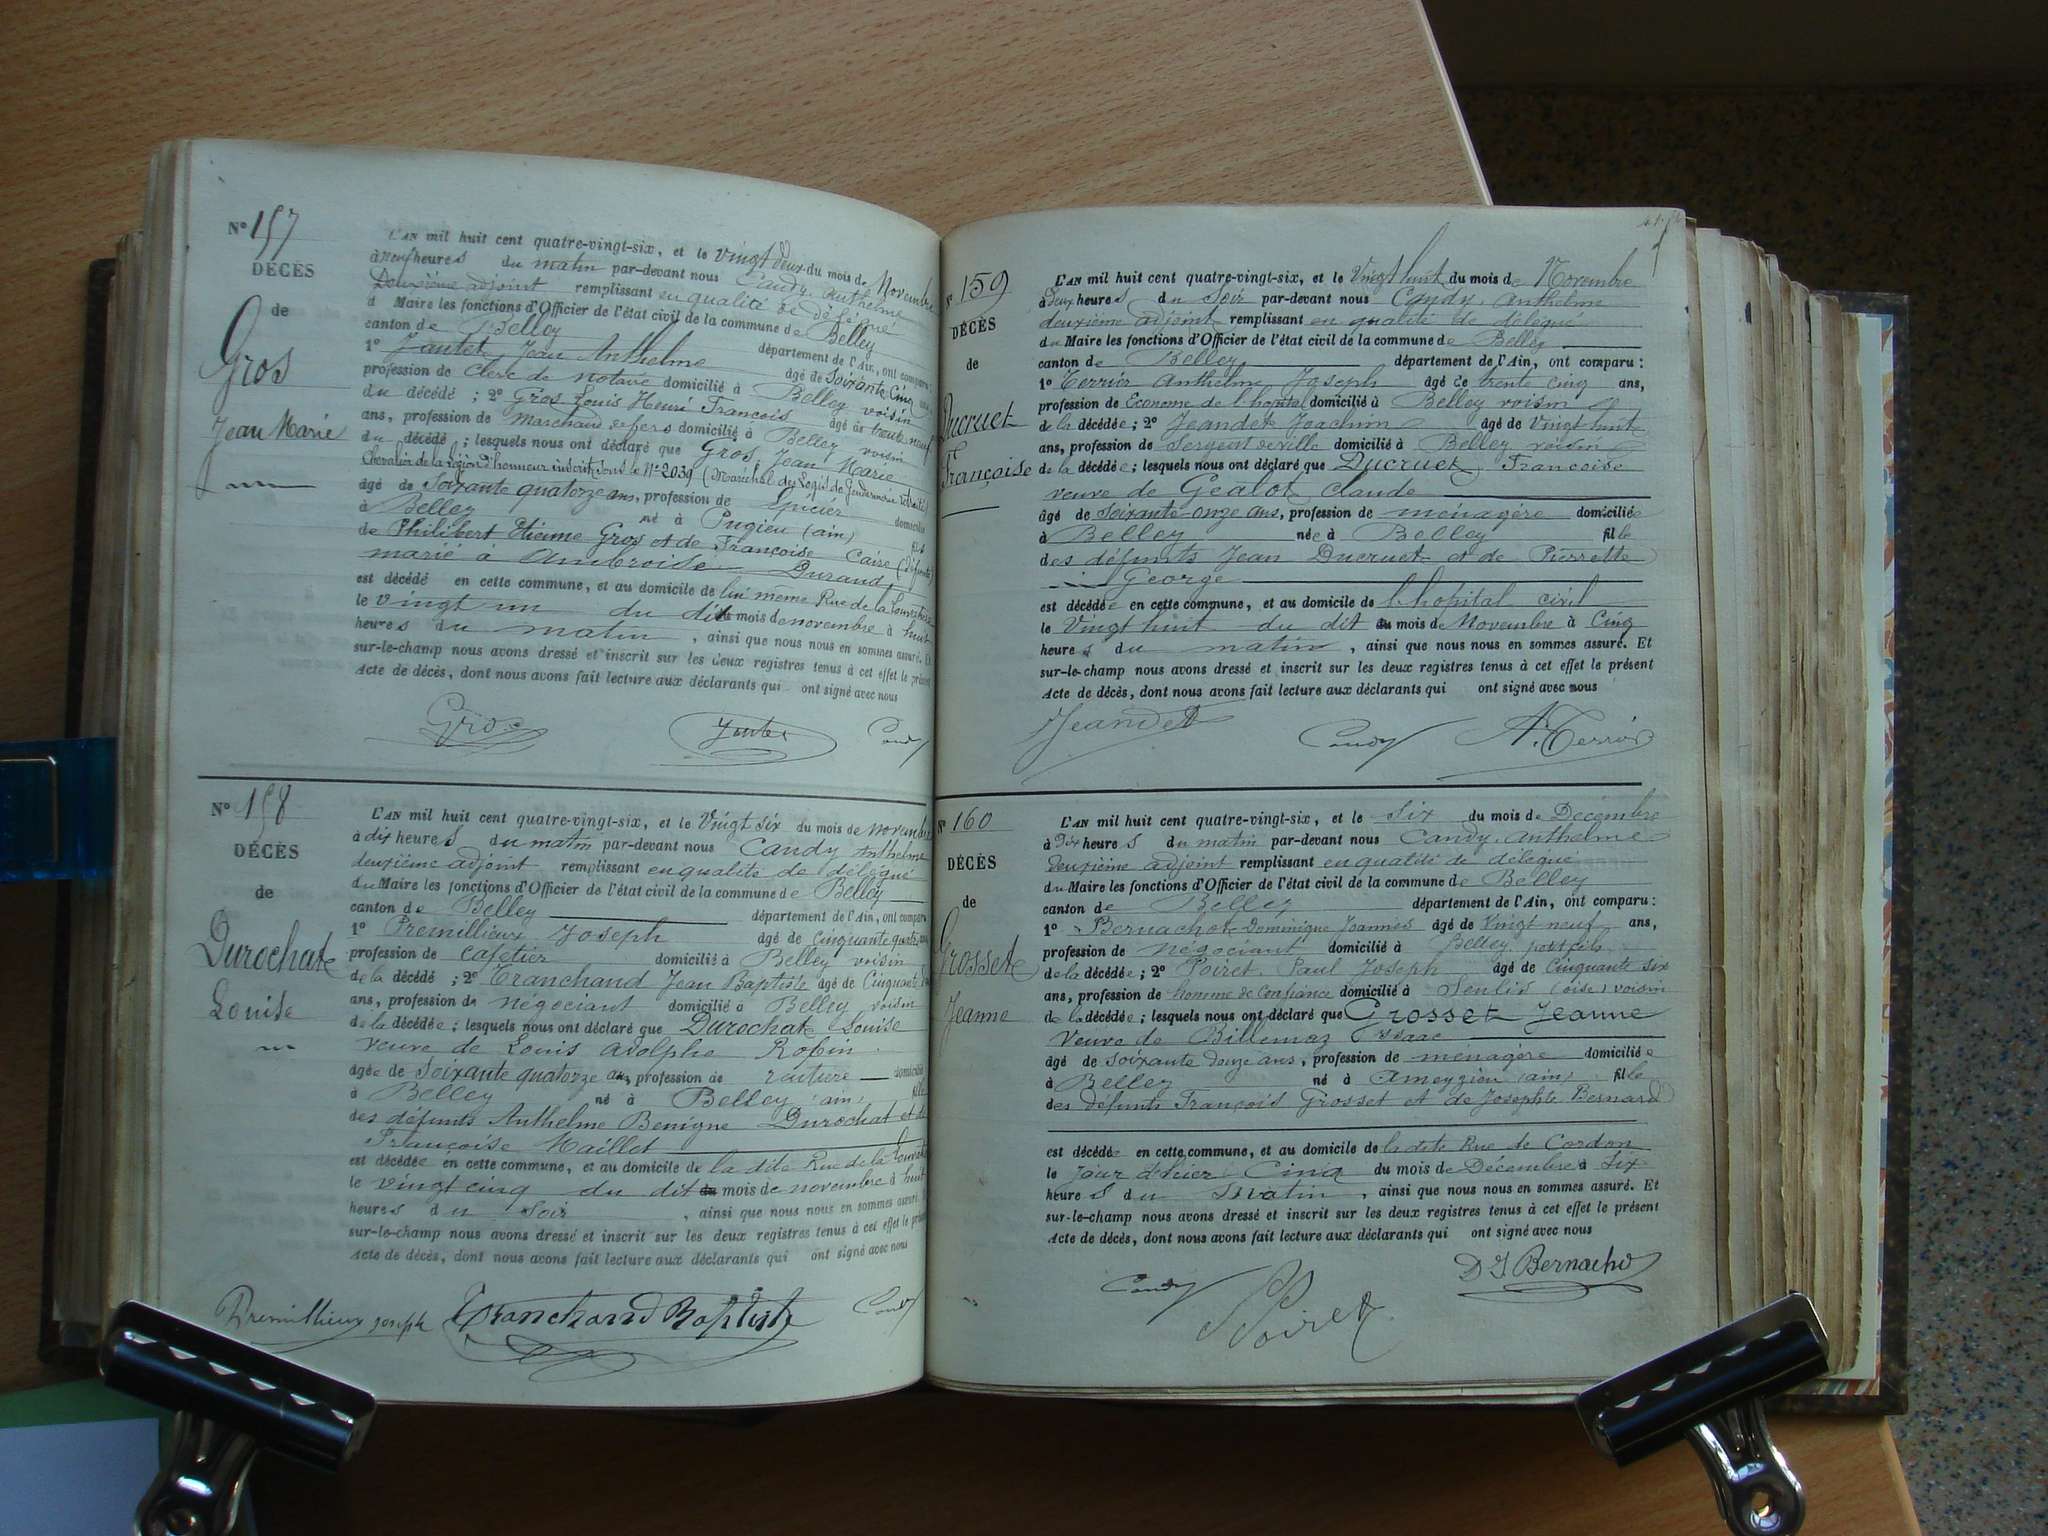 N° 157
DÉCÈS
de
Gros
Jean Marie
L'AN mil huit cent quatre-vingt-six, et le Vingt deux du mois de Novembre
à neuf heures du matin par-devant nous Candy Anthelme
Deuxième adjoint remplissant en qualité de délégué
d Maire les fonctions d'Officier de l'état civil de la commune de Belley
canton de Belley département de l'Ain, ont comparu :
1° Jantet Jean Anthelme âgé de Soixante Cinq ans,
profession de Clerc de notaire domicilié à Belley voisin
du décédé ; 2° Gros Louis Henri François âgé de trente neuf
ans, profession de Marchand de fers domicilié à Belley voisin
du décédé ; lesquels nous ont déclaré que Gros, Jean Marie
Chevalier de la légion d'honneur inscrit sous le N° 2039 (Maréchal des Logis de Gendarmerie retraité)
âgé de Soixante quatorze ans, profession de Epicier domicilié
à Belley né à Pugieu (ain) fils
de Philibert Etienne Gros et de Françoise Caire (défunts)
marié à Ambroise Durand
est décédé en cette commune, et au domicile de lui même Rue de la
le Vingt un du dit du mois de novembre à huit
heures du matin, ainsi que nous nous en sommes assuré. Et
sur-le-champ nous avons dressé et inscrit sur les deux registres tenus à cet effet le présent
Acte de décès, dont nous avons fait lecture aux déclarants qui ont signé avec nous
Gros Jantet Candy
N° 158
DÉCÈS
de
Durochat
Louise
L'AN mil huit cent quatre-vingt-six, et le Vingt six du mois de novembre
à dix heures du matin par-devant nous Candy Anthelme
deuxième adjoint remplissant en qualité de délégué
du Maire les fonctions d'Officier de l'état civil de la commune de Belley
canton de Belley département de l'Ain, ont comparu
1° Premillieux Joseph âgé de Cinquante quatre ans,
profession de Cafetier domicilié à Belley voisin
de la décédé ; 2° Tranchand Jean Baptiste âgé de Cinquante
ans, profession de négociant domicilié à Belley voisin
de la décédée ; lesquels nous ont déclaré que Durochat Louise
veuve de Louis Adolphe Robin
âgée de Soixante quatorze ans, profession de rentière domiciliée
à Belley né à Belley (ain) fille
des défunts Anthelme Benigne Durochat et de
Françoise Maillet
est décédée en cette commune, et au domicile de la dite Rue de la
le vingt cinq du dit du mois de novembre à huit
heures du Soir, ainsi que nous nous en sommes assuré. Et
sur-le-champ nous avons dressé et inscrit sur les deux registres tenus à cet effet le présent
Acte de décès, dont nous avons fait lecture aux déclarants qui ont signé avec nous
Premillieux Joseph Tranchand Baptiste Candy
N° 159
DÉCÈS
de
Ducruet
Françoise
L'AN mil huit cent quatre-vingt-six, et le Vingt huit du mois de Novembre
à deux heures du Soir par-devant nous Candy Anthelme
deuxième adjoint remplissant en qualité de délégué
du Maire les fonctions d'Officier de l'état civil de la commune de Belley
canton de Belley département de l'Ain, ont comparu :
1° Terrier Anthelme Joseph âgé de trente cinq ans,
profession de Econome de l'hopital domicilié à Belley voisin
de la décédée ; 2° Jeandet Joachim âgé de Vingt huit
ans, profession de Sergent de ville domicilié à Belley voisin
de la décédée ; lesquels nous ont déclaré que Ducruet, Françoise
veuve de Gealot Claude
âgé de Soixante onze ans, profession de ménagère domiciliée
à Belley née à Belley fille
des défunts Jean Ducruet et de Pierrette
George
est décédée en cette commune, et au domicile de l'hopital civil
le Vingt huit du dit du mois de Novembre à Cinq
heures du matin, ainsi que nous nous en sommes assuré. Et
sur-le-champ nous avons dressé et inscrit sur les deux registres tenus à cet effet le présent
Acte de décès, dont nous avons fait lecture aux déclarants qui ont signé avec nous
Jeandet Candy A. Terrier
N° 160
DÉCÈS
de
Grosset
Jeanne
L'AN mil huit cent quatre-vingt-six, et le Six du mois de Décembre
à Dix heures du matin par-devant nous Candy Anthelme
deuxième adjoint remplissant en qualité de délégué
du Maire les fonctions d'Officier de l'état civil de la commune de Belley
canton de Belley département de l'Ain, ont comparu :
1° Bernachot Dominique Joannès âgé de Vingt neuf ans,
profession de Négociant domicilié à Belley petit fils
de la décédée ; 2° Poiret Paul Joseph âgé de Cinquante six
ans, profession de homme de Confiance domicilié à Senlis (oise) voisin
de la décédée ; lesquels nous ont déclaré que Grosset Jeanne
Veuve de Billemaz Isaac
âgé de Soixante douze ans, profession de ménagère domiciliée
à Belley né à Ameyzieu (ain) fille
des défunts François Grosset et de Josephte Bernard
est décédée en cette commune, et au domicile de la dite Rue de Cordon
le jour d'hier Cinq du mois de Décembre à Six
heures du Matin, ainsi que nous nous en sommes assuré. Et
sur-le-champ nous avons dressé et inscrit sur les deux registres tenus à cet effet le présent
Acte de décès, dont nous avons fait lecture aux déclarants qui ont signé avec nous
Candy Poiret D J Bernachot